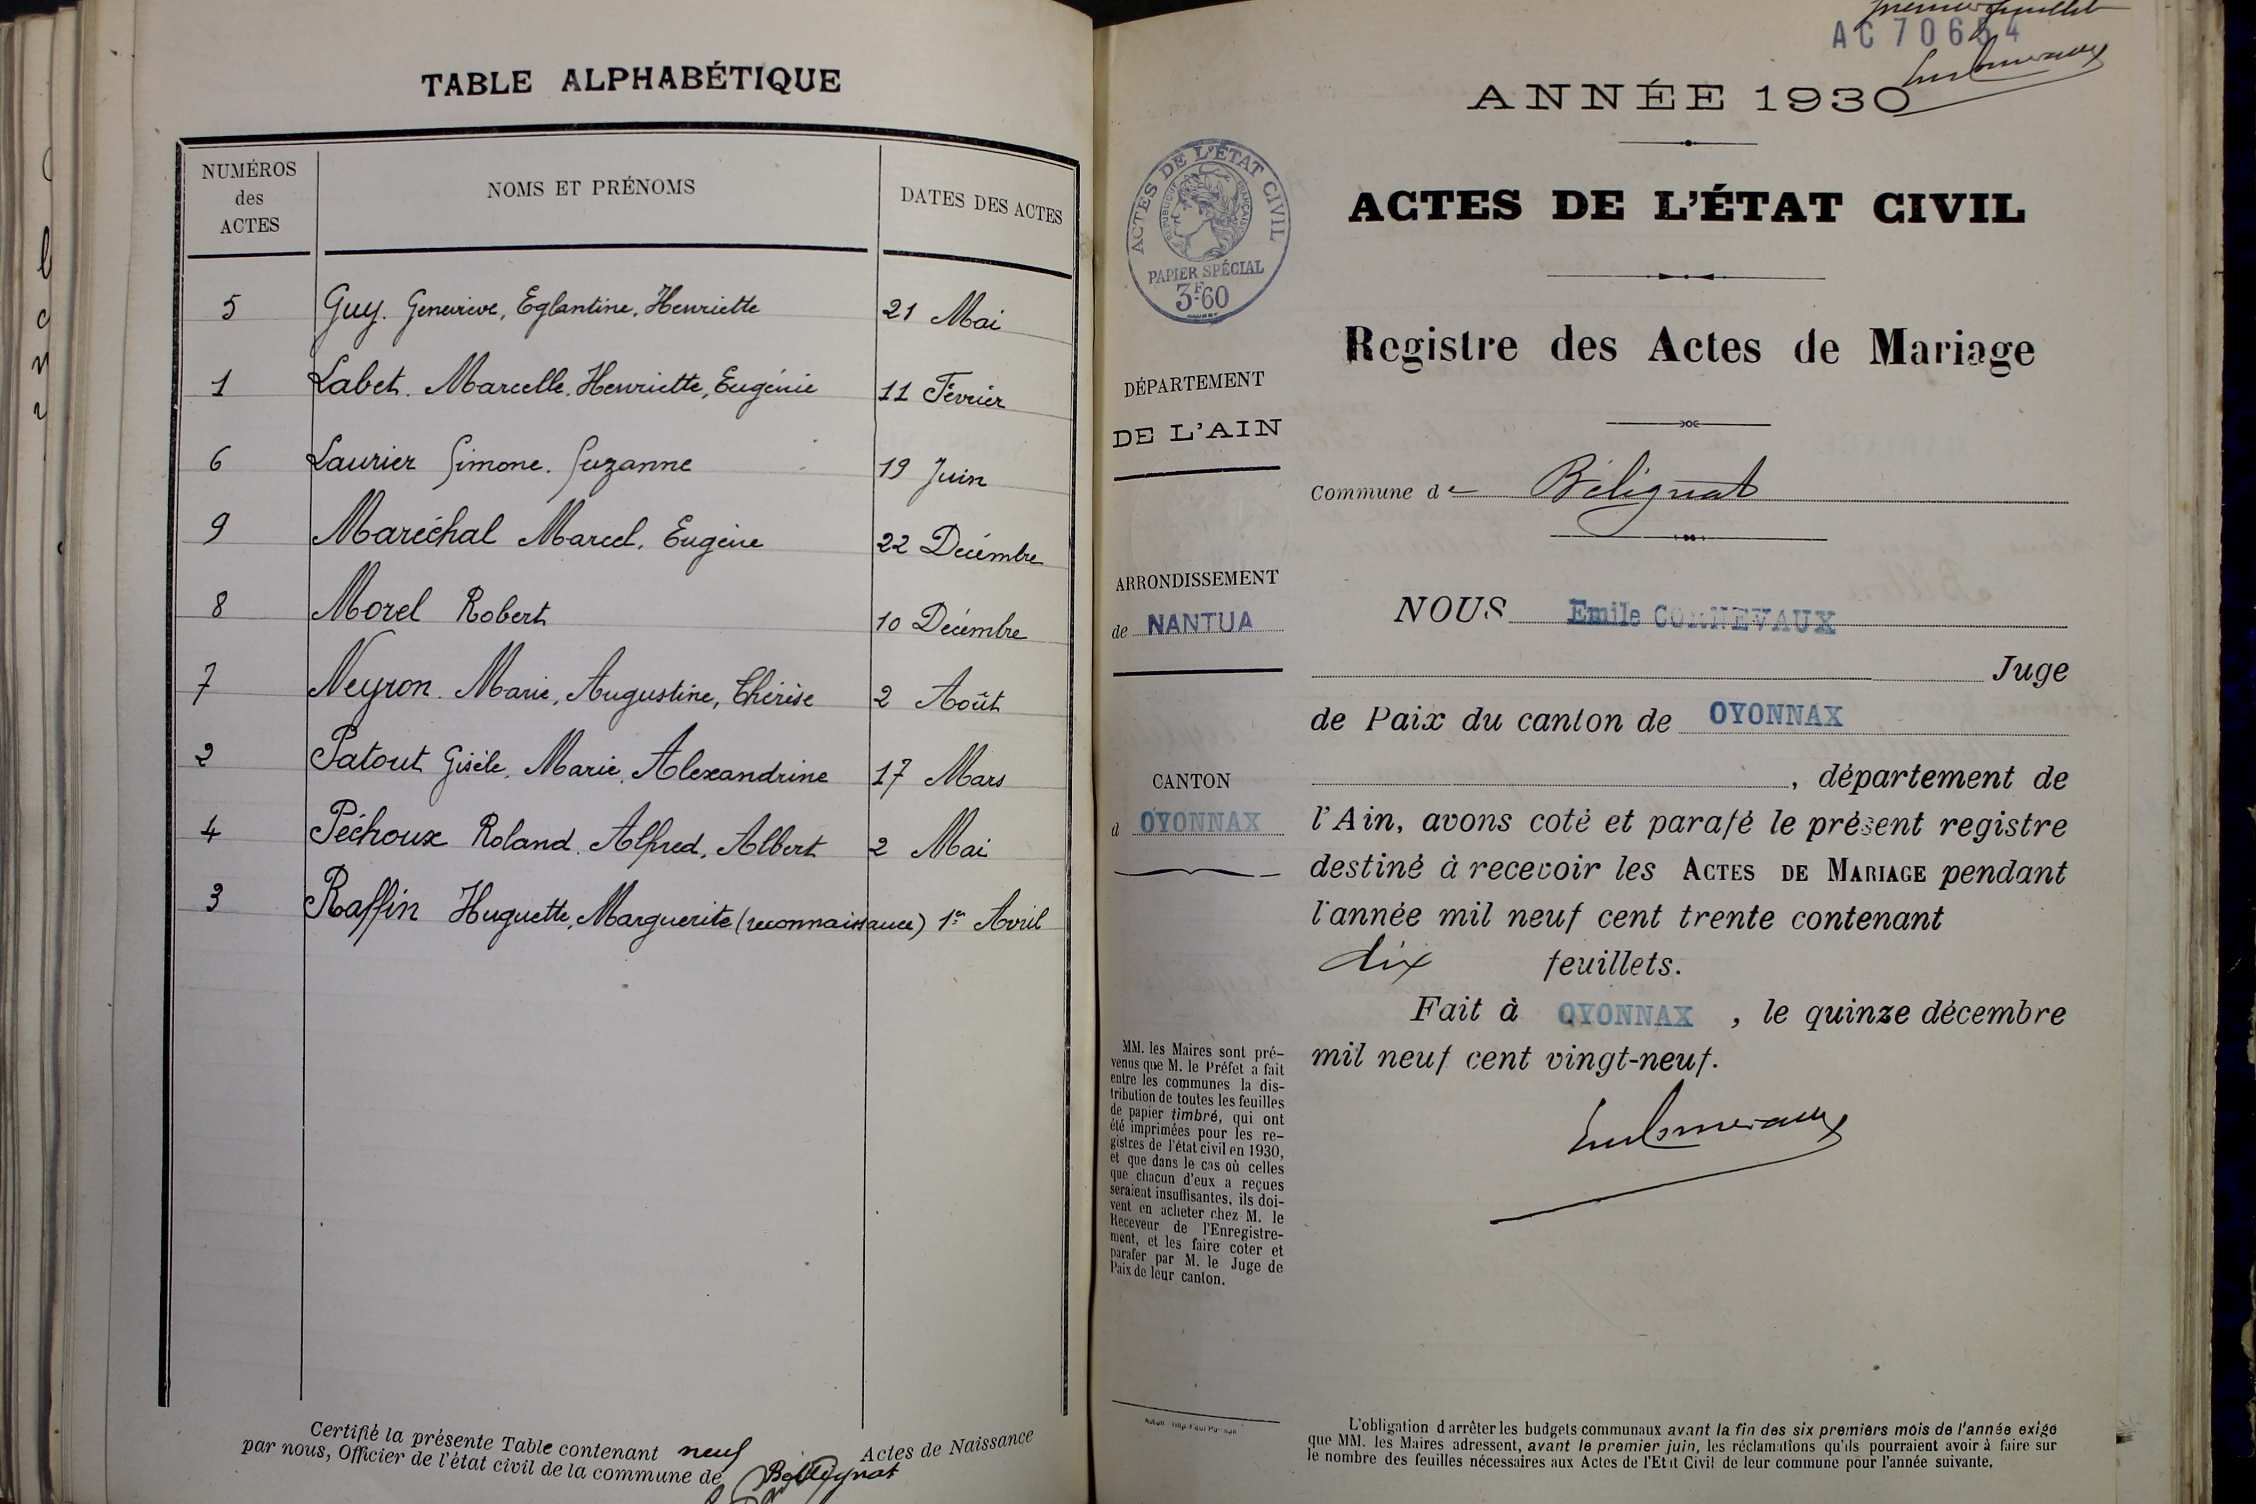 TABLE ALPHABÉTIQUE
NUMÉROS
des
ACTES
NOMS ET PRÉNOMS
DATES DES ACTES
5 Guy. Geneviève, Eglantine, Henriette 21 Mai
1 Labet. Marcelle, Henriette, Eugénie 11 Février
6 Laurier Simone. Suzanne 19 Juin
9 Maréchal Marcel, Eugène 22 Décembre
8 Morel Robert 10 Décembre
7 Neyron. Marie, Augustine, Thérèse 2 Août
2 Patout Gisèle, Marie, Alexandrine 17 Mars
4 Péchoux Roland, Alfred, Albert 2 Mai
3 Raffin Huguette, Marguerite (reconnaissance) 1er Avril
Certifié la présente Table contenant neuf Actes de Naissance
par nous, Officier de l'état civil de la commune de Bélignat
premier feuillet
AC 70654
ANNÉE 1930
ACTES DE L'ÉTAT CIVIL
Registre des Actes de Mariage
ACTES DE L'ÉTAT CIVIL
RÉPUBLIQUE FRANÇAISE
PAPIER SPÉCIAL
3F60
DÉPARTEMENT
DE L'AIN
ARRONDISSEMENT
de NANTUA
CANTON
d OYONNAX
MM. les Maires sont pré-
venus que M. le Préfet a fait
entre les communes la dis-
tribution de toutes les feuilles
de papier timbré, qui ont
été imprimées pour les re-
gistres de l'état civil en 1930,
et que dans le cas où celles
que chacun d'eux a reçues
seraient insuffisantes, ils doi-
vent en acheter chez M. le
Receveur de l'Enregistre-
ment, et les faire coter et
parafer par M. le Juge de
Paix de leur canton.
Commune de Bélignat
NOUS Emile CORNEVAUX
Juge
de Paix du canton de OYONNAX
, département de
l'Ain, avons coté et parafé le présent registre
destiné à recevoir les ACTES DE MARIAGE pendant
l'année mil neuf cent trente contenant
dix feuillets.
Fait à OYONNAX, le quinze décembre
mil neuf cent vingt-neuf.
L'obligation d'arrêter les budgets communaux avant la fin des six premiers mois de l'année exige
que MM. les Maires adressent, avant le premier juin, les réclamations qu'ils pourraient avoir à faire sur
le nombre des feuilles nécessaires aux Actes de l'Etat Civil de leur commune pour l'année suivante.